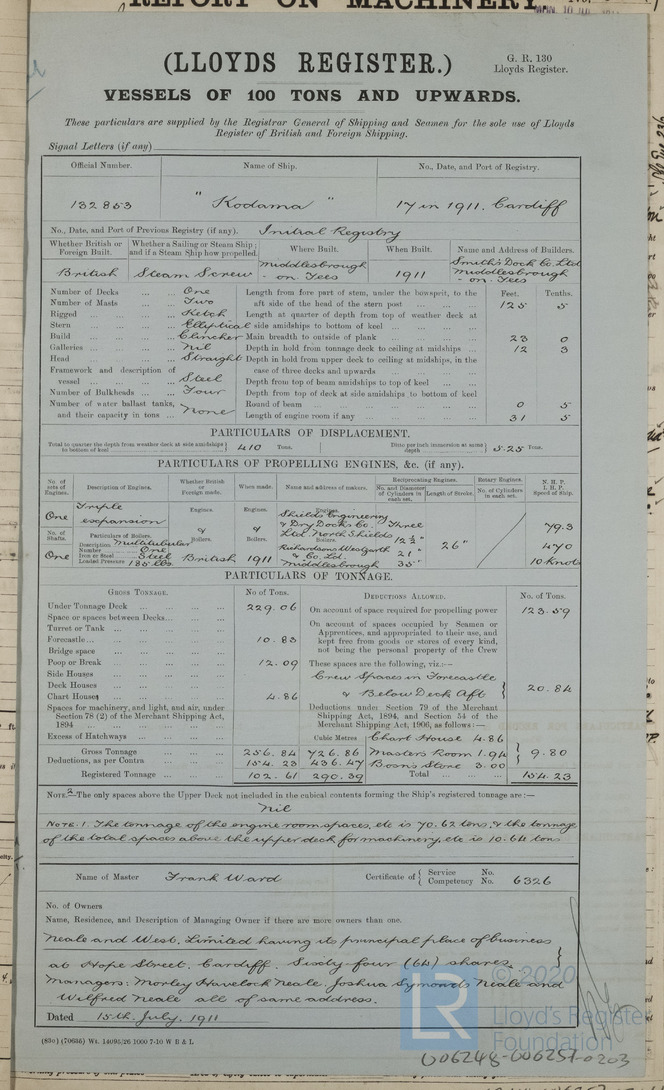 REPORT ON MACHINERY
(LLOYDS REGISTER.)
G. R. 130
Lloyds Register.
VESSELS OF 100 TONS AND UPWARDS.
These particulars are supplied by the Registrar General of Shipping and Seamen for the sole use of Lloyds
Register of British and Foreign Shipping.
Signal Letters (if any)
Official Number. Name of Ship. No., Date, and Port of Registry.
132853 "Kodama" 17 in 1911. Cardiff
No., Date, and Port of Previous Registry (if any). Initial Registry
Whether British or Foreign Built. Whether a Sailing or Steam Ship; and if a Steam Ship how propelled. Where Built. When Built. Name and Address of Builders.
British Steam Screw Middlesbrough - on Tees 1911 Smith's Dock Co. Ltd Middlesbrough - on Tees
Number of Decks ... One Length from fore part of stem, under the bowsprit, to the Feet. Tenths.
Number of Masts ... Two aft side of the head of the stern post 125 5
Rigged ... Ketch Length at quarter of depth from top of weather deck at
Stern ... Elliptical side amidships to bottom of keel
Build ... Clincher Main breadth to outside of plank 23 0
Galleries ... Nil Depth in hold from tonnage deck to ceiling at midships 12 3
Head ... Straight Depth in hold from upper deck to ceiling at midships, in the
Framework and description of case of three decks and upwards
vessel ... Steel Depth from top of beam amidships to top of keel
Number of Bulkheads ... Four Depth from top of deck at side amidships to bottom of keel
Number of water ballast tanks, Round of beam 0 5
and their capacity in tons ... None Length of engine room if any 31 5
PARTICULARS OF DISPLACEMENT.
Total to quarter the depth from weather deck at side amidships to bottom of keel 410 Tons. Ditto per inch immersion at same depth 5.25 Tons.
PARTICULARS OF PROPELLING ENGINES, &c. (if any).
No. of sets of Engines. Description of Engines. Whether British or Foreign made. When made. Name and address of makers. Reciprocating Engines. No. and Diameter of Cylinders in each set. Length of Stroke. Rotary Engines. No. of Cylinders in each set. N. H. P. I. H. P. Speed of Ship.
One Triple expansion Engines. Engines. Engines. Shields Engineering & Dry Docks Co. Ltd. North Shields Three 79.3
No. of Shafts. Particulars of Boilers. & Boilers. & Boilers. Boilers. 12½" 26" 470
Description Multitubular
Number One Richardsons Westgarth & Co. Ltd. 21"
One Iron or Steel Steel British 1911 Middlesbrough 35" 10 knots
Loaded Pressure 185 lbs.
PARTICULARS OF TONNAGE.
GROSS TONNAGE. No. of Tons. DEDUCTIONS ALLOWED. No. of Tons.
Under Tonnage Deck ... 229.06 On account of space required for propelling power 123.59
Space or spaces between Decks... On account of spaces occupied by Seamen or
Turret or Tank ... Apprentices, and appropriated to their use, and
Forecastle... 10.83 kept free from goods or stores of every kind,
Bridge space not being the personal property of the Crew
Poop or Break 12.09 These spaces are the following, viz.:—
Side Houses Crew Spaces in Forecastle
Deck Houses & Below Deck Aft 20.84
Chart Houses 4.86
Spaces for machinery, and light, and air, under Deductions under Section 79 of the Merchant
Section 78 (2) of the Merchant Shipping Act, Shipping Act, 1894, and Section 54 of the
1894 Merchant Shipping Act, 1906, as follows:—
Excess of Hatchways Cubic Metres Chart House 4.86
Gross Tonnage 256.84 726.86 Masters Room 1.94 9.80
Deductions, as per Contra 154.23 436.47 Boson's Store 3.00
Registered Tonnage 102.61 290.39 Total 154.23
NOTE. 2 —The only spaces above the Upper Deck not included in the cubical contents forming the Ship's registered tonnage are:—
Nil
NOTE. 1. The tonnage of the engine room spaces, etc is 70.62 tons, & the tonnage
of the total spaces above the upper deck for machinery, etc is 10.64 tons
Name of Master Frank Ward Certificate of { Service No. Competency No. 6326
No. of Owners
Name, Residence, and Description of Managing Owner if there are more owners than one.
Neale and West, Limited having its principal place of business
at Hope Street, Cardiff. Sixty four (64) shares
Managers: Morley Havelock Neale Joshua Symonds Neale and
Wilfred Neale all of same address.
Dated 15th July, 1911
(830) (70636) Wt. 14095/26 1000 7-10 W B & L
© 2020
LR
Lloyd's Register
Foundation
006248-006257-0203